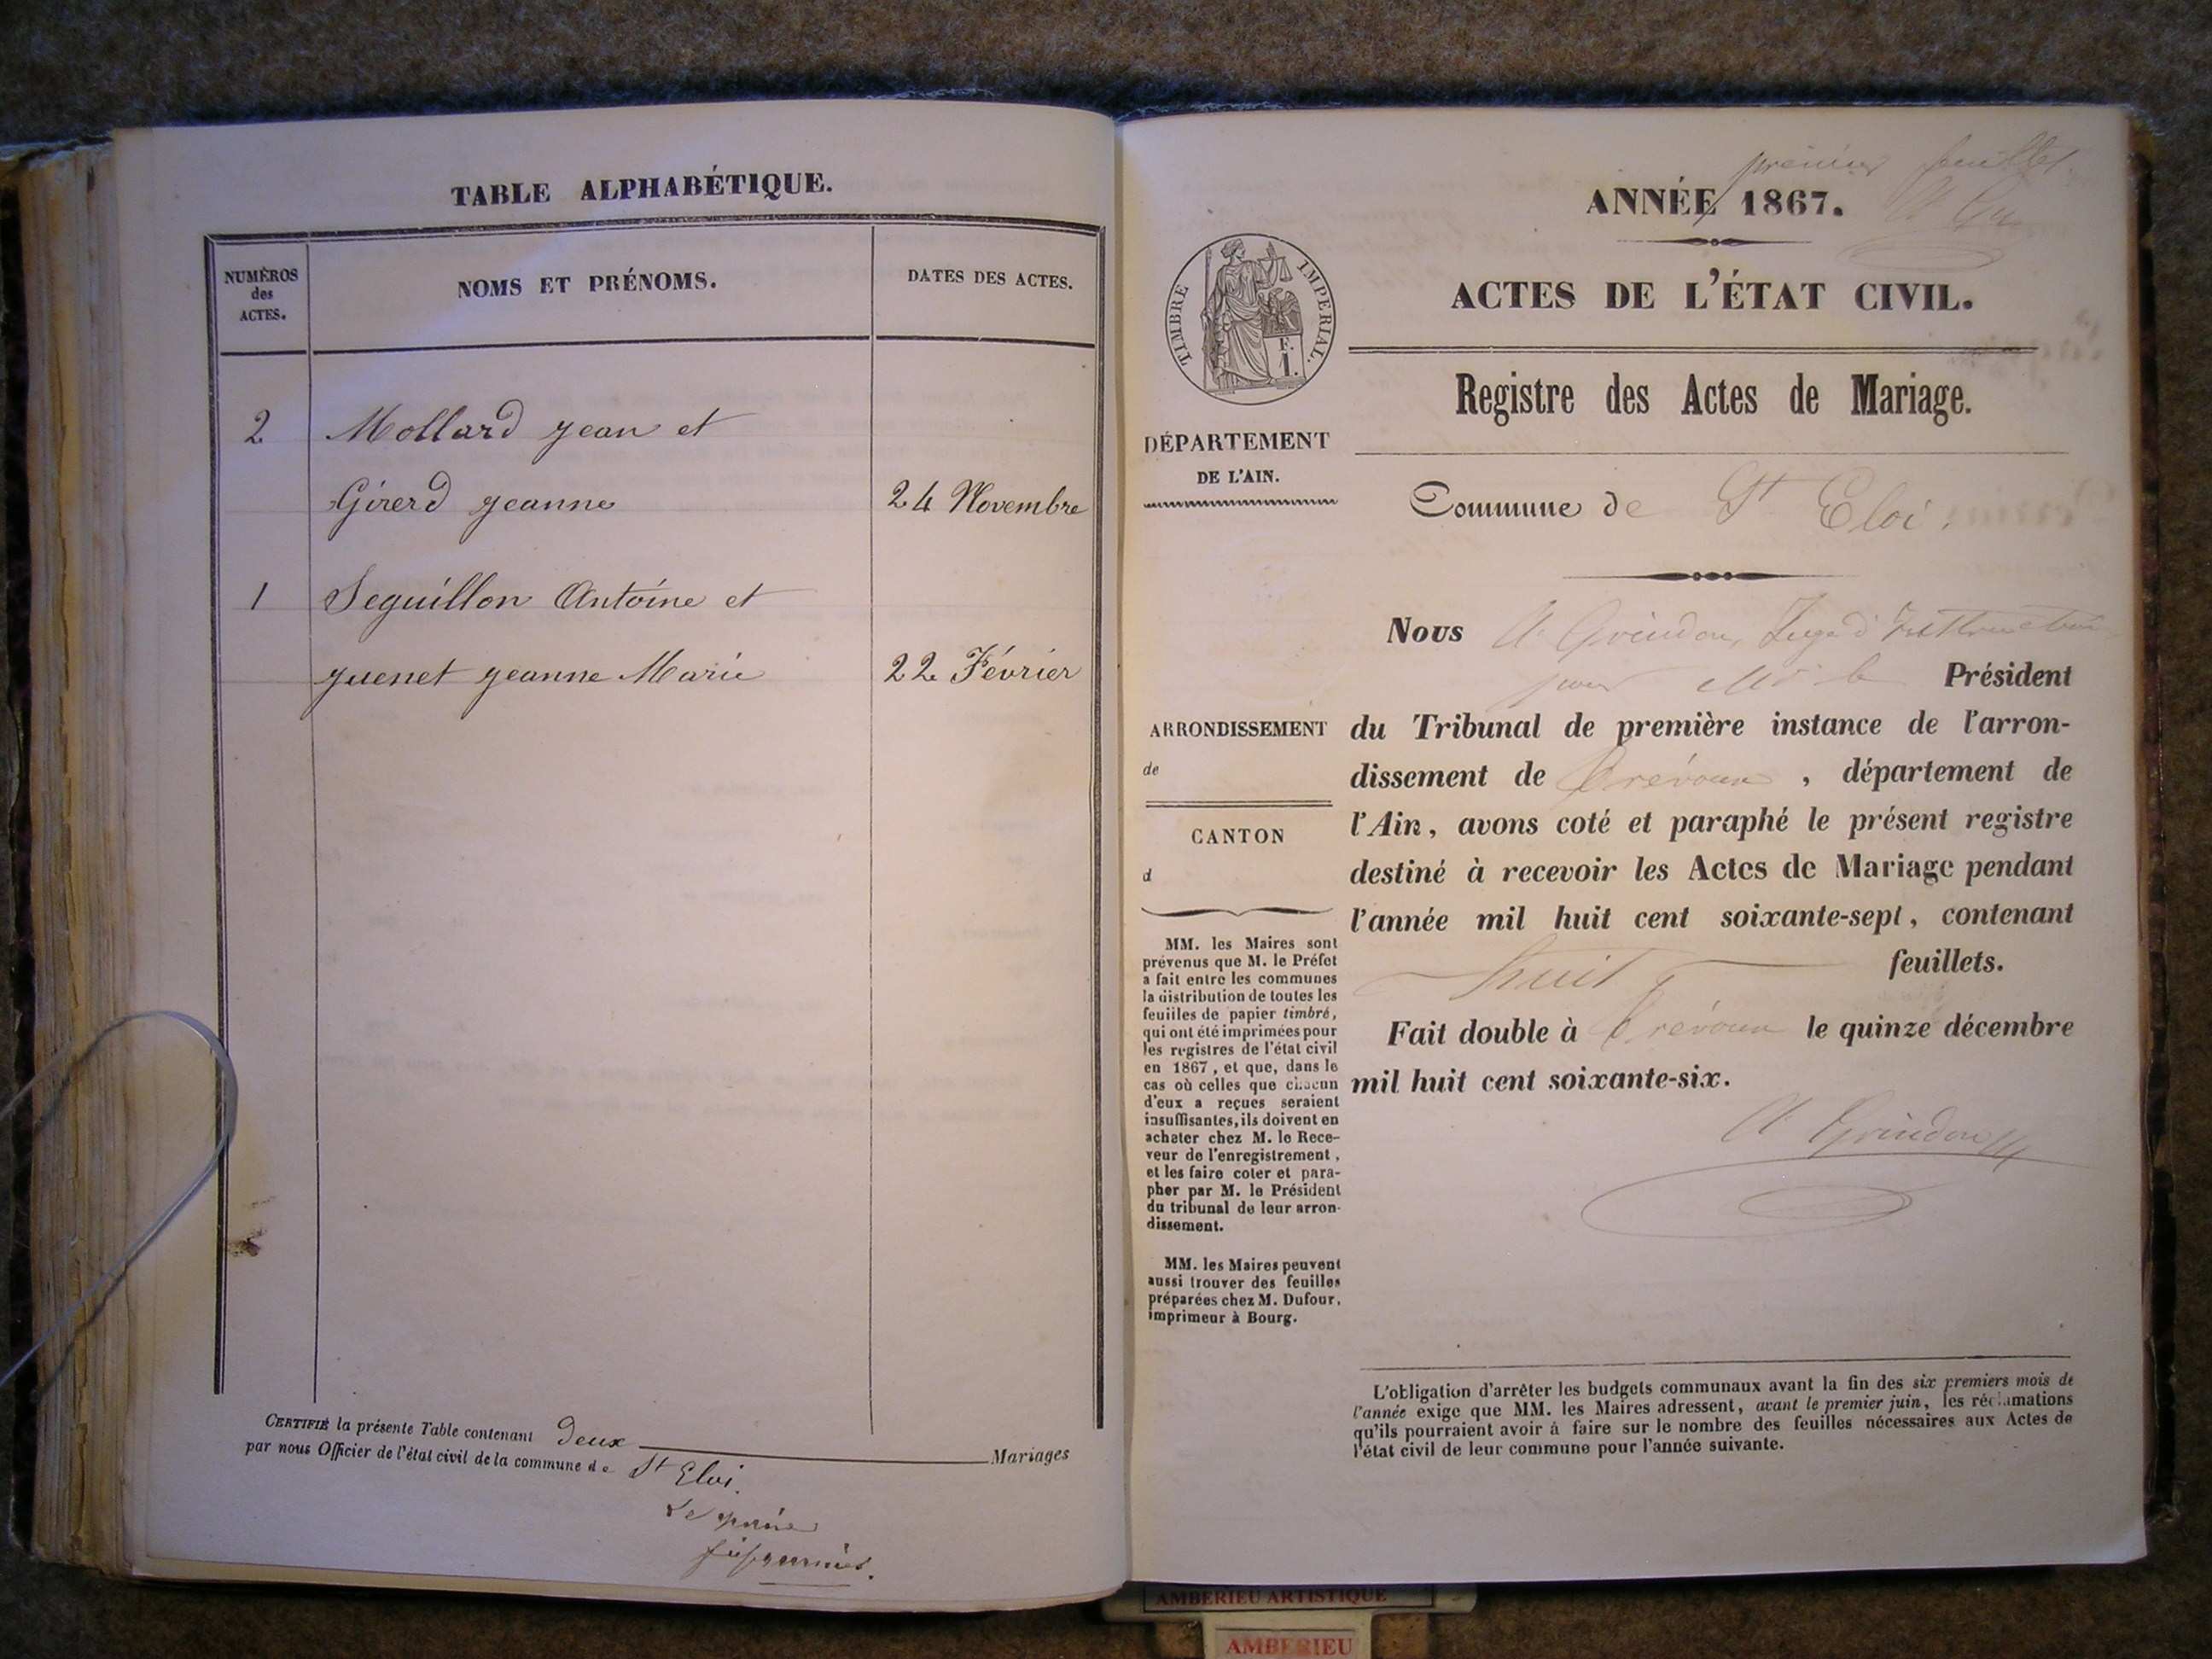 TABLE ALPHABÉTIQUE.
NUMÉROS
des
ACTES.
NOMS ET PRÉNOMS.
DATES DES ACTES.
2 Mollard Jean et
Girerd Jeanne 24 Novembre
1 Seguillon Antoine et
Juenet Jeanne Marie 22 Février
CERTIFIÉ la présente Table contenant deux Mariages
par nous Officier de l'état civil de la commune de St Eloi.
Le maire
premier feuillet
ANNÉE 1867.
ACTES DE L'ÉTAT CIVIL.
TIMBRE IMPERIAL.
F.
1.
Registre des Actes de Mariage.
DÉPARTEMENT
DE L'AIN.
Commune de St Eloi.
ARRONDISSEMENT
de
CANTON
d
MM. les Maires sont
prévenus que M. le Préfet
a fait entre les communes
la distribution de toutes les
feuilles de papier timbré,
qui ont été imprimées pour
les registres de l'état civil
en 1867, et que, dans le
cas où celles que chacun
d'eux a reçues seraient
insuffisantes, ils doivent en
acheter chez M. le Rece-
veur de l'enregistrement,
et les faire coter et para-
pher par M. le Président
du tribunal de leur arron-
dissement.
MM. les Maires peuvent
aussi trouver des feuilles
préparées chez M. Dufour,
imprimeur à Bourg.
Nous A. Grindon, Juge d'Instruction
pour Mr le Président
du Tribunal de première instance de l'arron-
dissement de Trévoux, département de
l'Ain, avons coté et paraphé le présent registre
destiné à recevoir les Actes de Mariage pendant
l'année mil huit cent soixante-sept, contenant
huit feuillets.
Fait double à Trévoux le quinze décembre
mil huit cent soixante-six.
A. Grindon
L'obligation d'arrêter les budgets communaux avant la fin des six premiers mois de
l'année exige que MM. les Maires adressent, avant le premier juin, les réclamations
qu'ils pourraient avoir à faire sur le nombre des feuilles nécessaires aux Actes de
l'état civil de leur commune pour l'année suivante.
AMBERIEU ARTISTIQUE
AMBERIEU